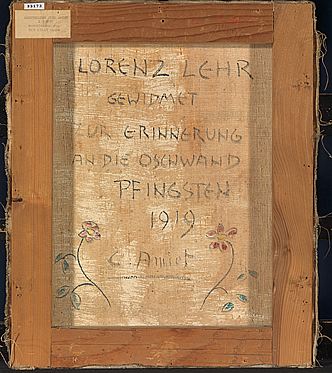 33173
LORENZ LEHR
GEWIDMET
ZUR ERINNERUNG
AN DIE OSCHWAND
PFINGSTEN
1919
C. Amiet